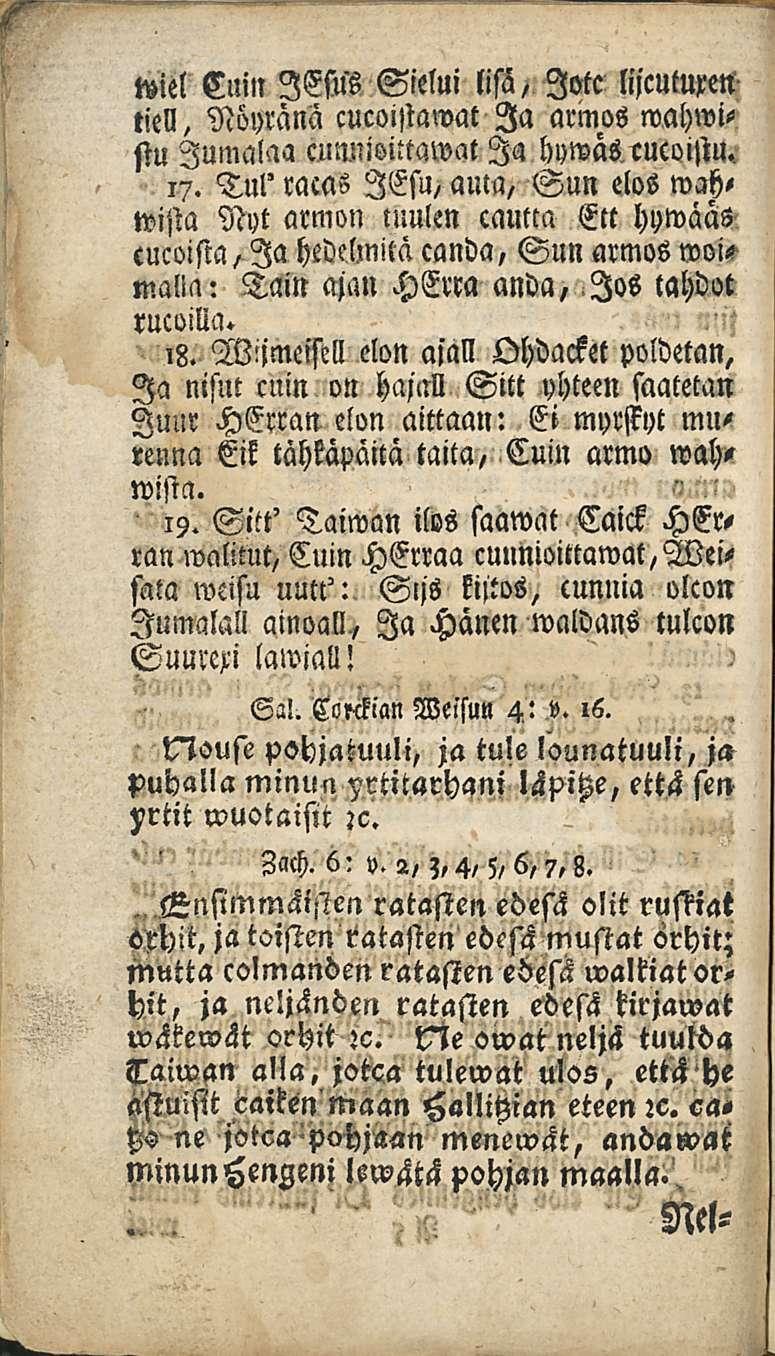 wiel Cuin JEsus Sielui lisä, Jotc lijcutuxen
tiell, Nöyränä cucoistawat Ja armos wahwi⸗
stu Jumalaa cunnioittawat Ja hywäs cucoistu.
17. Tul' racas JEsu, auta, Sun elos wah⸗
wista Nyt armon tuulen cautta Ett hywääs
cucoista, Ja hedelmitä canda, Sun armos woi⸗
malla: Tain ajan HErra anda, Jos tahdot
rucoilla.
18. Wijmeisell elon ajall Ohdacket poldetan,
Ja nisut cuin on hajall Sitt yhteen saatetan
Juur HErran elon aittaan: Ei myrskyt mu⸗
renna Eik tähkäpäitä taita, Cuin armo wah⸗
wista.
19. Sitt' Taiwan ilos saawat Caick HEr⸗
ran walitut, Cuin HErraa cunnioittawat, Wei⸗
sata weisu uutt': Sijs kijtos, cunnia olcon
Jumalall ainoall, Ja Hänen waldans tulcon
Suurexi lawiall!
Sal. Corckian Weisun 4: v. 16.
Nouse pohjatuuli, ja tule lounatuuli, ja
puhalla minun yrtitarhani läpitze, että sen
yrtit wuotaisit ꝛc.
Zach. 6: v. 2, 3, 4, 5, 6, 7, 8.
Ensimmäisten ratasten edesä olit ruskiat
orhit, ja toisten ratasten edesä mustat orhit;
mutta colmanden ratasten edesä walkiat or⸗
hit, ja neljänden ratasten edesä kirjawat
wäkewät orhit ꝛc. Ne owat neljä tuulda
Taiwan alla, jotca tulewat ulos, että he
astuisit caiken maan Hallitzian eteen ꝛc. ca⸗
tzo ne jotca pohjaan menewät, andawat
minun Hengeni lewätä pohjan maalla.
Nel⸗